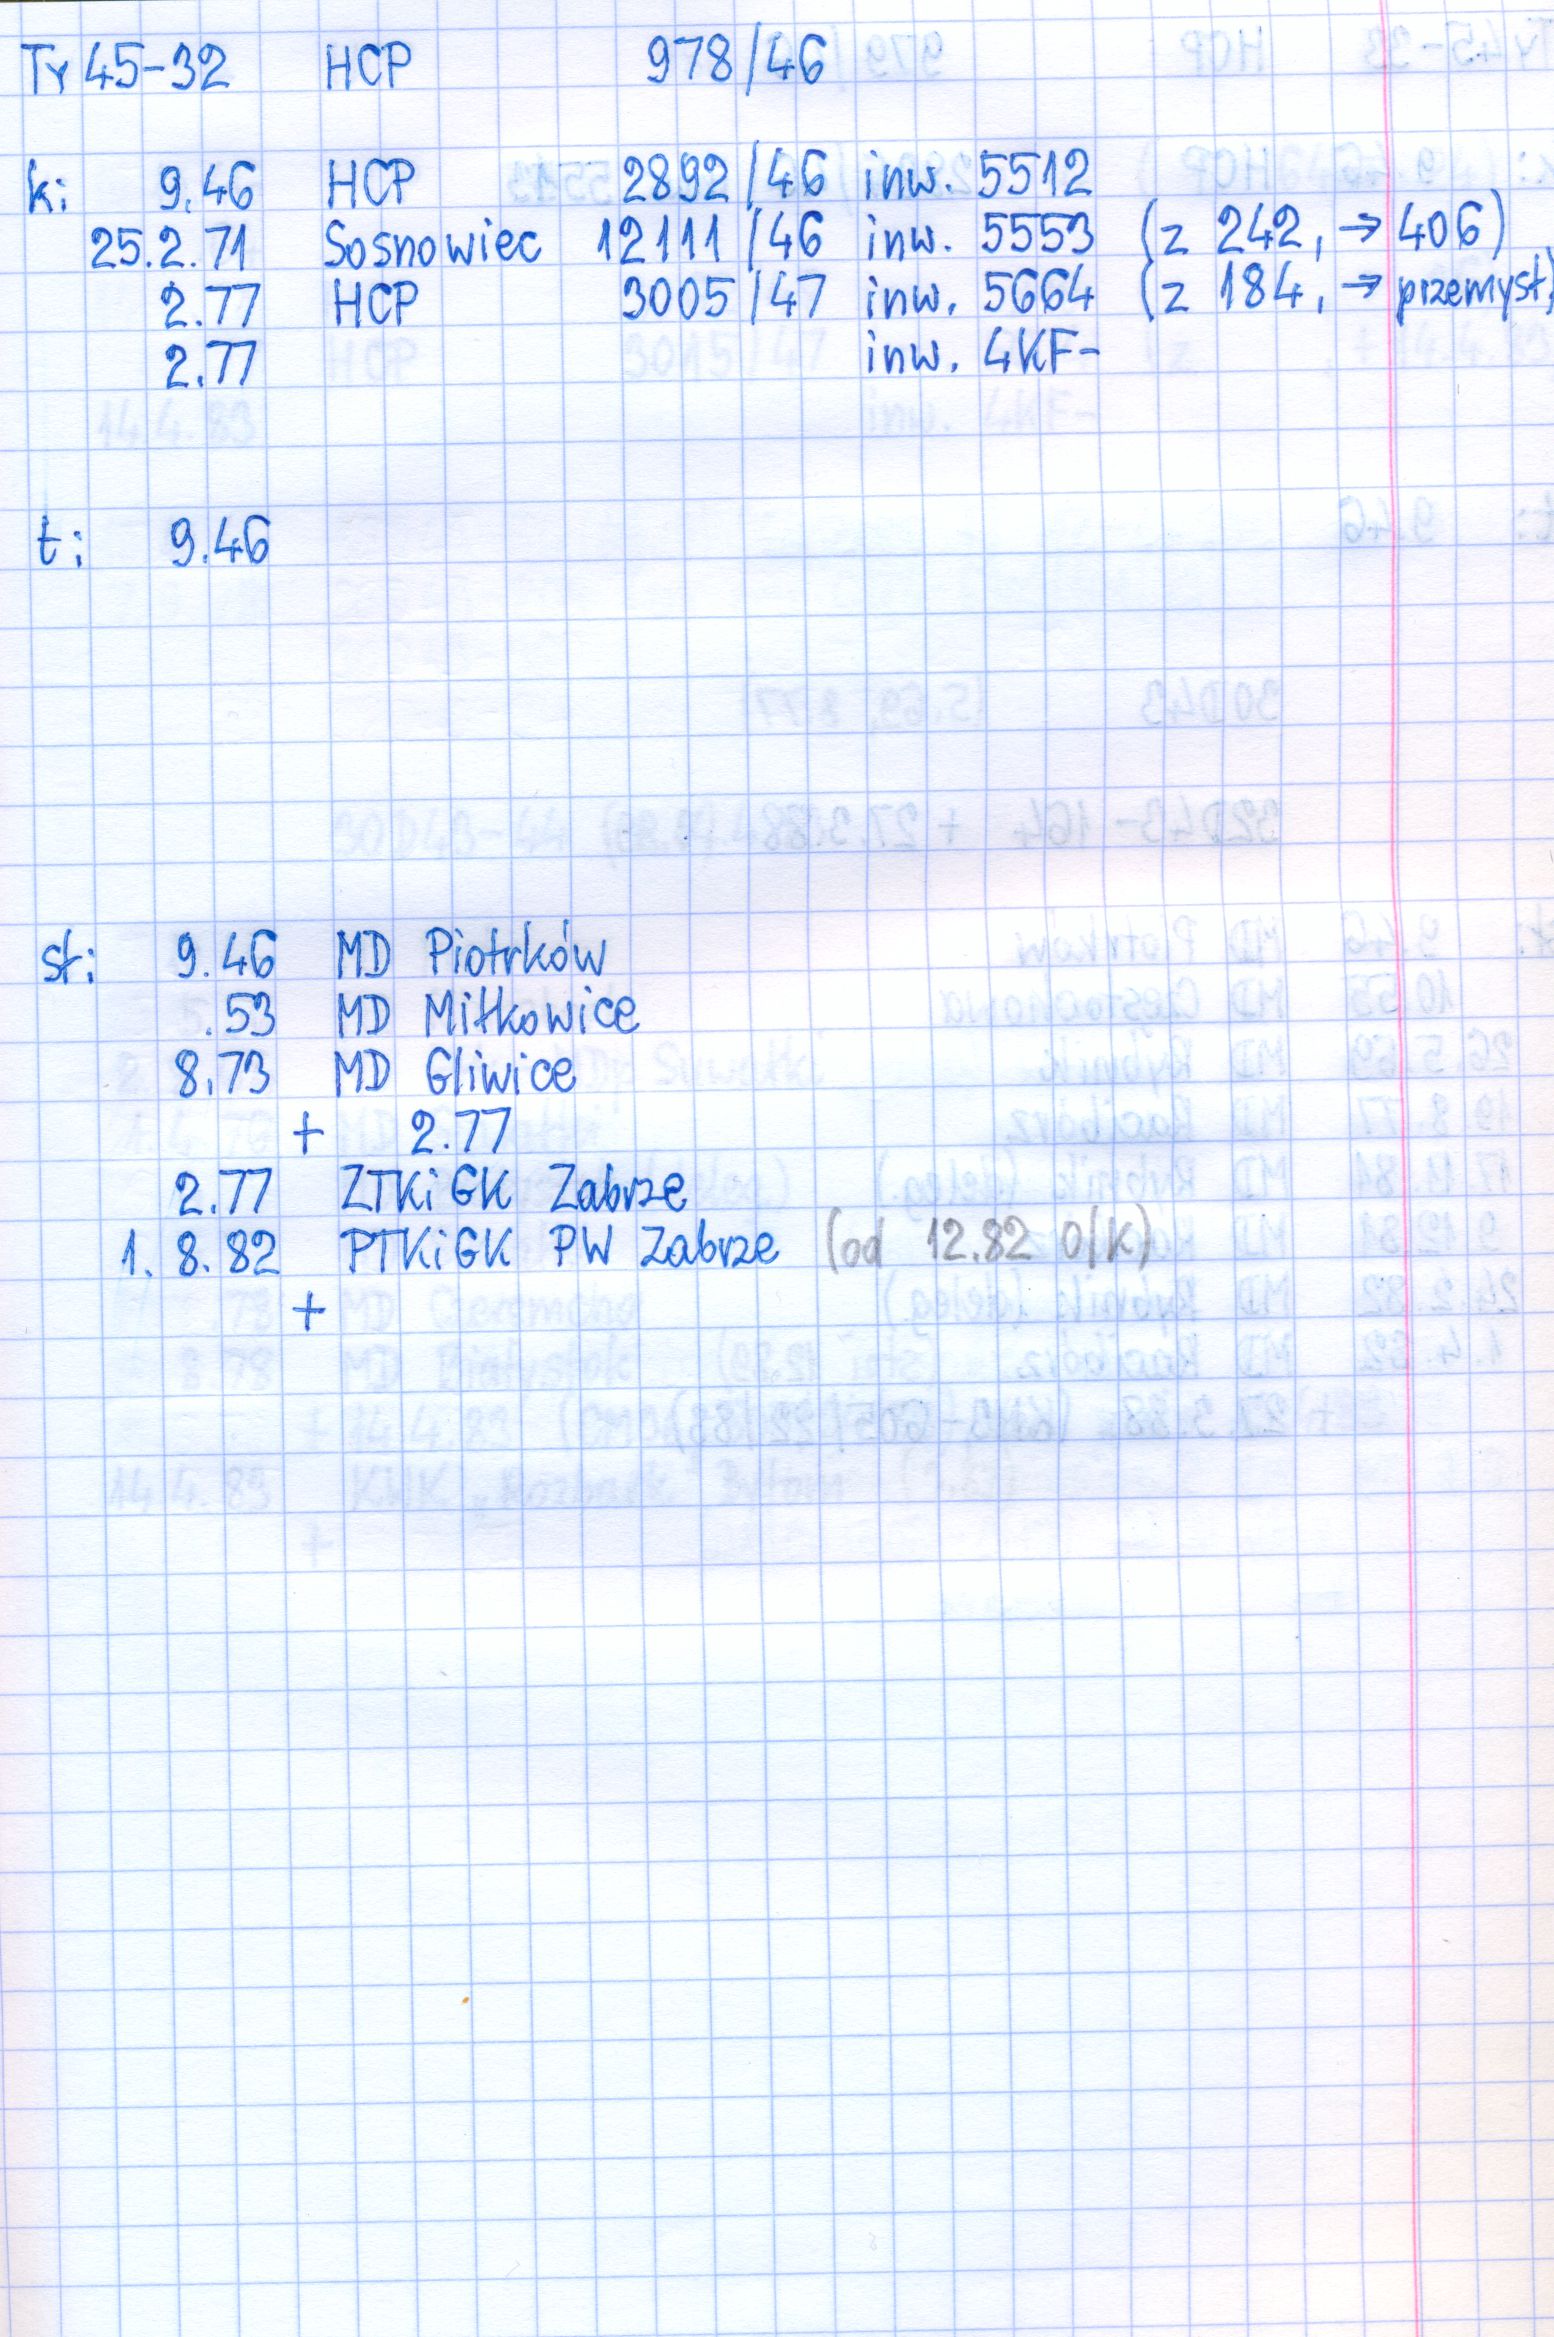 Ty 45-32 HCP 978/46
k: 9.46 HCP 2892/46 inw. 5512
25.2.71 Sosnowiec 12111/46 inw. 5553 (z 242, → 406)
2.77 HCP 3005/47 inw. 5664 (z 184, → przemysł)
2.77 inw. 4KF-
t: 9.46
st: 9.46 MD Piotrków
.53 MD Miłkowice
8.73 MD Gliwice
+ 2.77
2.77 ZTKiGK Zabrze
1. 8.82 PTKiGK PW Zabrze (od 12.82 O/K)
+